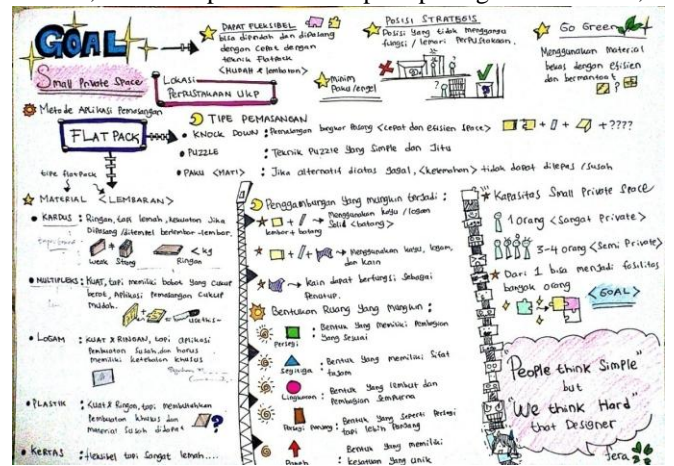 GOAL
DAPAT FLEKSIBEL
bisa dipindah dan dipasang
dengan cepat dengan
teknik Flatpack
minim
Paku/engsel
POSISI STRATEGIS
Posisi yang tidak mengganggu
fungsi / lemari Perpustakaan.
Go Green
Menggunakan material
bekas dengan efisien
dan bermanfaat
Small Private Space
Lokasi
PERPUSTAKAAN UKP
Metode Aplikasi Pemasangan
FLAT PACK
tipe flatpack
TIPE PEMASANGAN
• KNOCK DOWN : Pemasangan bongkar Pasang <cepat dan efisien space>
+ ????
• PUZZLE : Teknik Puzzle yang Simple dan Jitu
• PAKU <MATI> : Jika alternatif diatas gagal, <kelemahan> tidak dapat dilepas /susah
MATERIAL <LEMBARAN>
• KARDUS : Ringan, tapi lemah, kekuatan Jika
Dipasang /ditempel berlembar-lembar.
weak Strong Ringan
< kg
• MULTIPLEKS : KUAT, tapi memiliki bobot yang Cukup
berat, Aplikasi Pemasangan Cukup
Mudah.
• LOGAM : KUAT & RINGAN, tapi aplikasi
Pembuatan Susah, dan harus
memiliki ketebalan khusus
• PLASTIK : Kuat & Ringan, tapi membutuhkan
Pembuatan khusus dan
Material Susah didapat
?
• KERTAS : fleksibel tapi Sangat lemah....
Penggambungan yang mungkin terjadi :
Menggunakan kayu /logam
Solid <batang>
lembar + batang
Menggunakan kayu, logam,
dan Kain
Kain dapat berfungsi Sebagai
Penutup.
Bentukan Ruang yang Mungkin :
Persegi : Bentuk yang memiliki Pembagian
Yang Sesuai
Segitiga : Bentuk yang memiliki Sifat
tajam
Lingkaran : Bentuk yang lembut dan
Pembagian Sempurna
Persegi Panjang : Bentuk yang seperti Persegi
tapi lebih Panjang
Panah : Bentuk yang memiliki
kesatuan yang unik
Kapasitas Small Private Space
1 Orang <Sangat Private>
3-4 orang <Semi Private>
Dari 1 bisa menjadi fasilitas
banyak orang
<GOAL>
"People think Simple"
but
"We think Hard"
that Designer
Jera